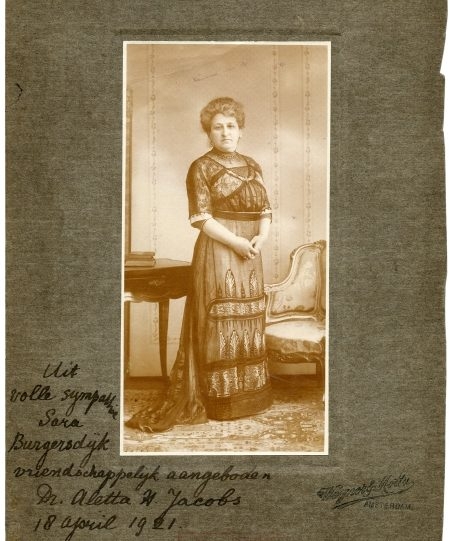 Uit
volle sympathie
Sara
Burgersdyk
vriendschappelyk aangeboden
Dr. Aletta H Jacobs
18 april 1921.
AMSTERDAM.